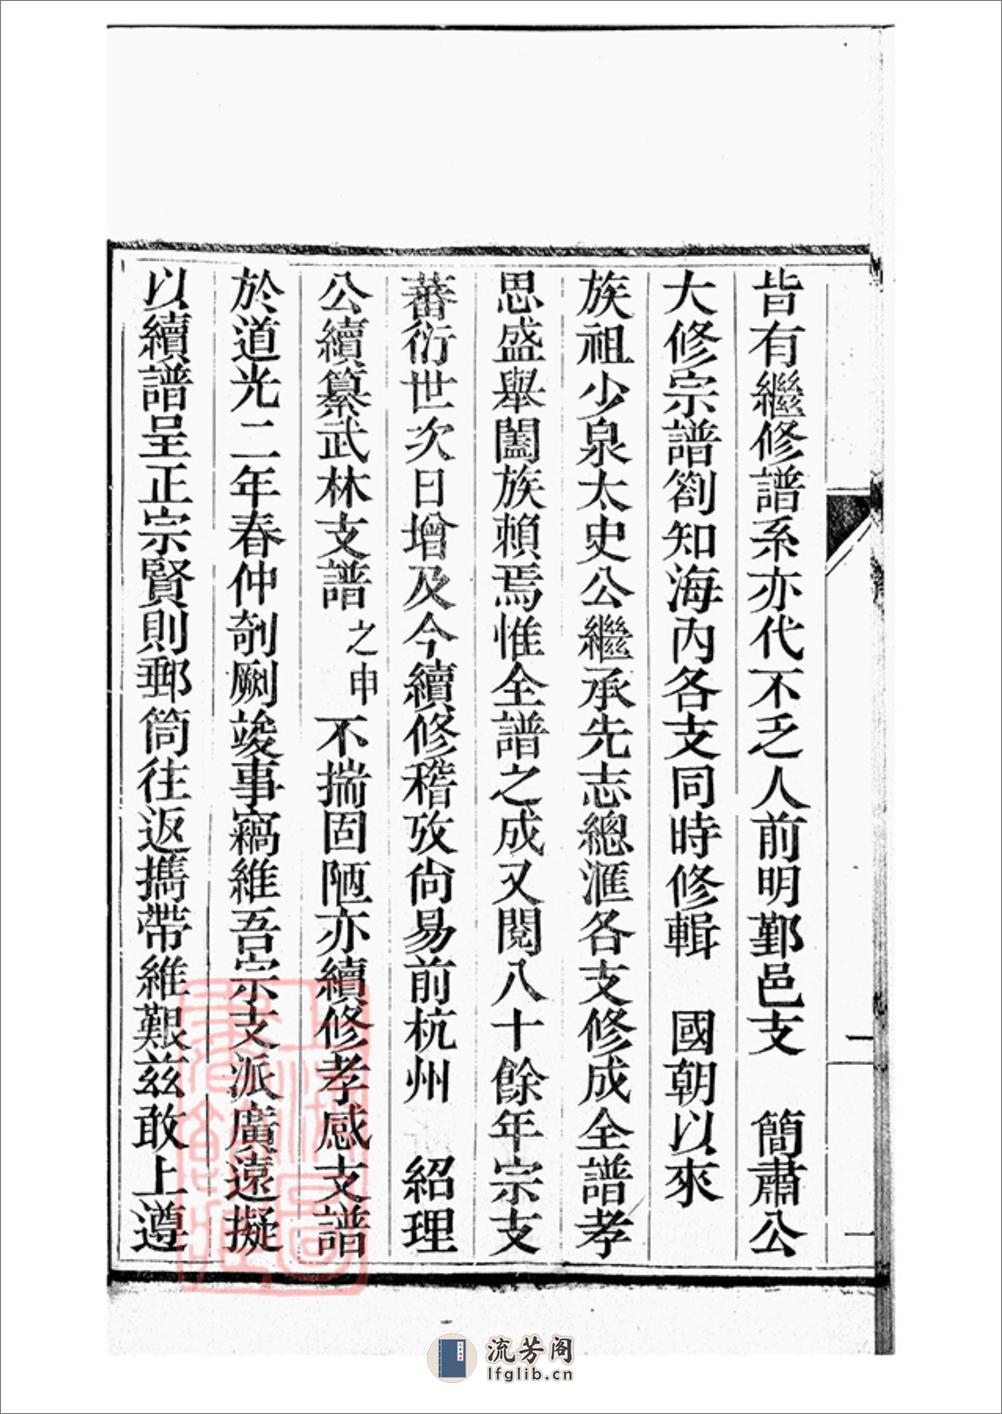 皆有繼修譜系亦代不乏人前明鄞邑支　簡肅公
大修宗譜劄知海內各支同時修輯　國朝以來
族祖少泉太史公繼承先志總滙各支修成全譜孝
思盛舉闔族賴焉惟全譜之成又閱八十餘年宗支
蕃衍世次日增及今續修稽攷尙易前杭州　紹理
公續纂武林支譜之申不揣固陋亦續修孝感支譜
於道光二年春仲剞劂竣事竊維吾宗支派廣遠擬
以續譜呈正宗賢則郵筒往返攜帶維艱茲敢上遵
二
一
流芳阁
lfglib.cn